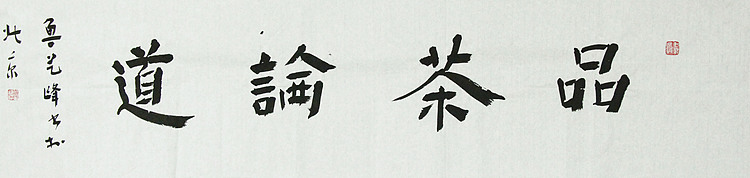 品茶論道
魯光峰书於
北京